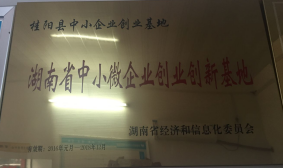 桂阳县中小企业创业基地
湖南省中小微企业创业创新基地
湖南省经济和信息化委员会